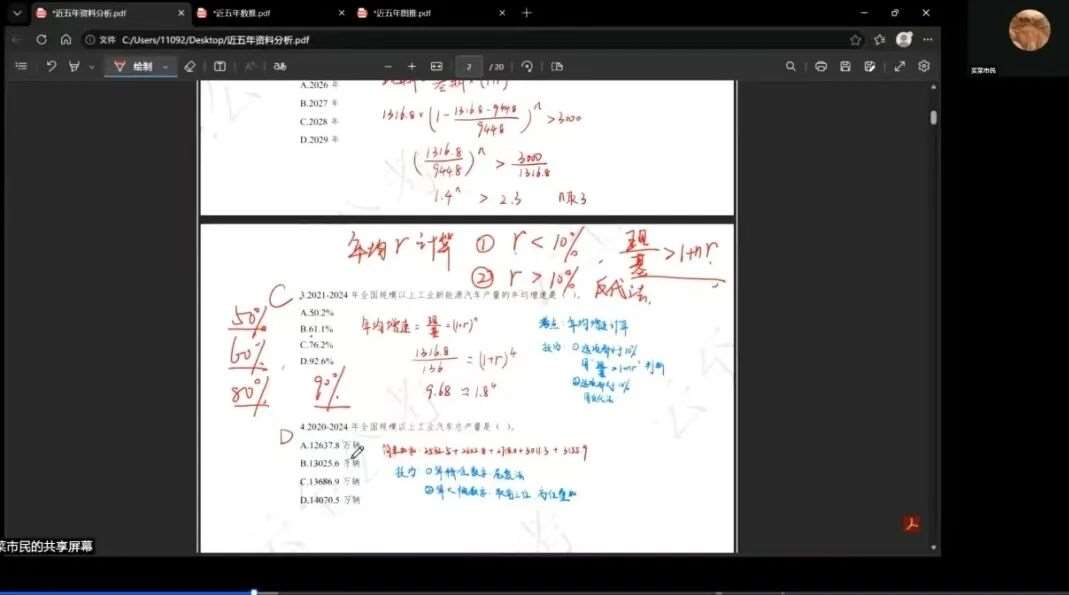 *近五年资料分析.pdf
*近五年数推.pdf
*近五年图推.pdf
文件 C:/Users/11092/Desktop/近五年资料分析.pdf
绘制
2 / 20
买菜市民
A.2026 年
B.2027 年
C.2028 年
D.2029 年
1316.8×(1-\frac{1316.8-944.8}{944.8})^n >3000
(\frac{1316.8}{944.8})^n > \frac{3000}{1316.8}
1.4^n > 2.3 n取3
年均r计算 ① r<10%, \frac{现}{基}>1+nr
② r>10% 反代法
C
3.2021-2024 年全国规模以上工业新能源汽车产量的年均增速是（ ）。
A.50.2%
B.61.1%
C.76.2%
D.92.6%
50%
60%
80%
90%
年均增速=\frac{现}{基}=(1+r)^n
\frac{1316.8}{136}=(1+r)^4
9.68=1.8^4
考点：年均增速计算
技巧：①选项都小于10%
用\frac{现}{基}>1+nr判断
②选项都大于10%
用反代法
D
4.2020-2024 年全国规模以上工业汽车总产量是（ ）。
A.12637.8 万辆
B.13025.6 万辆
C.13686.9 万辆
D.14070.5 万辆
菜市民的共享屏幕